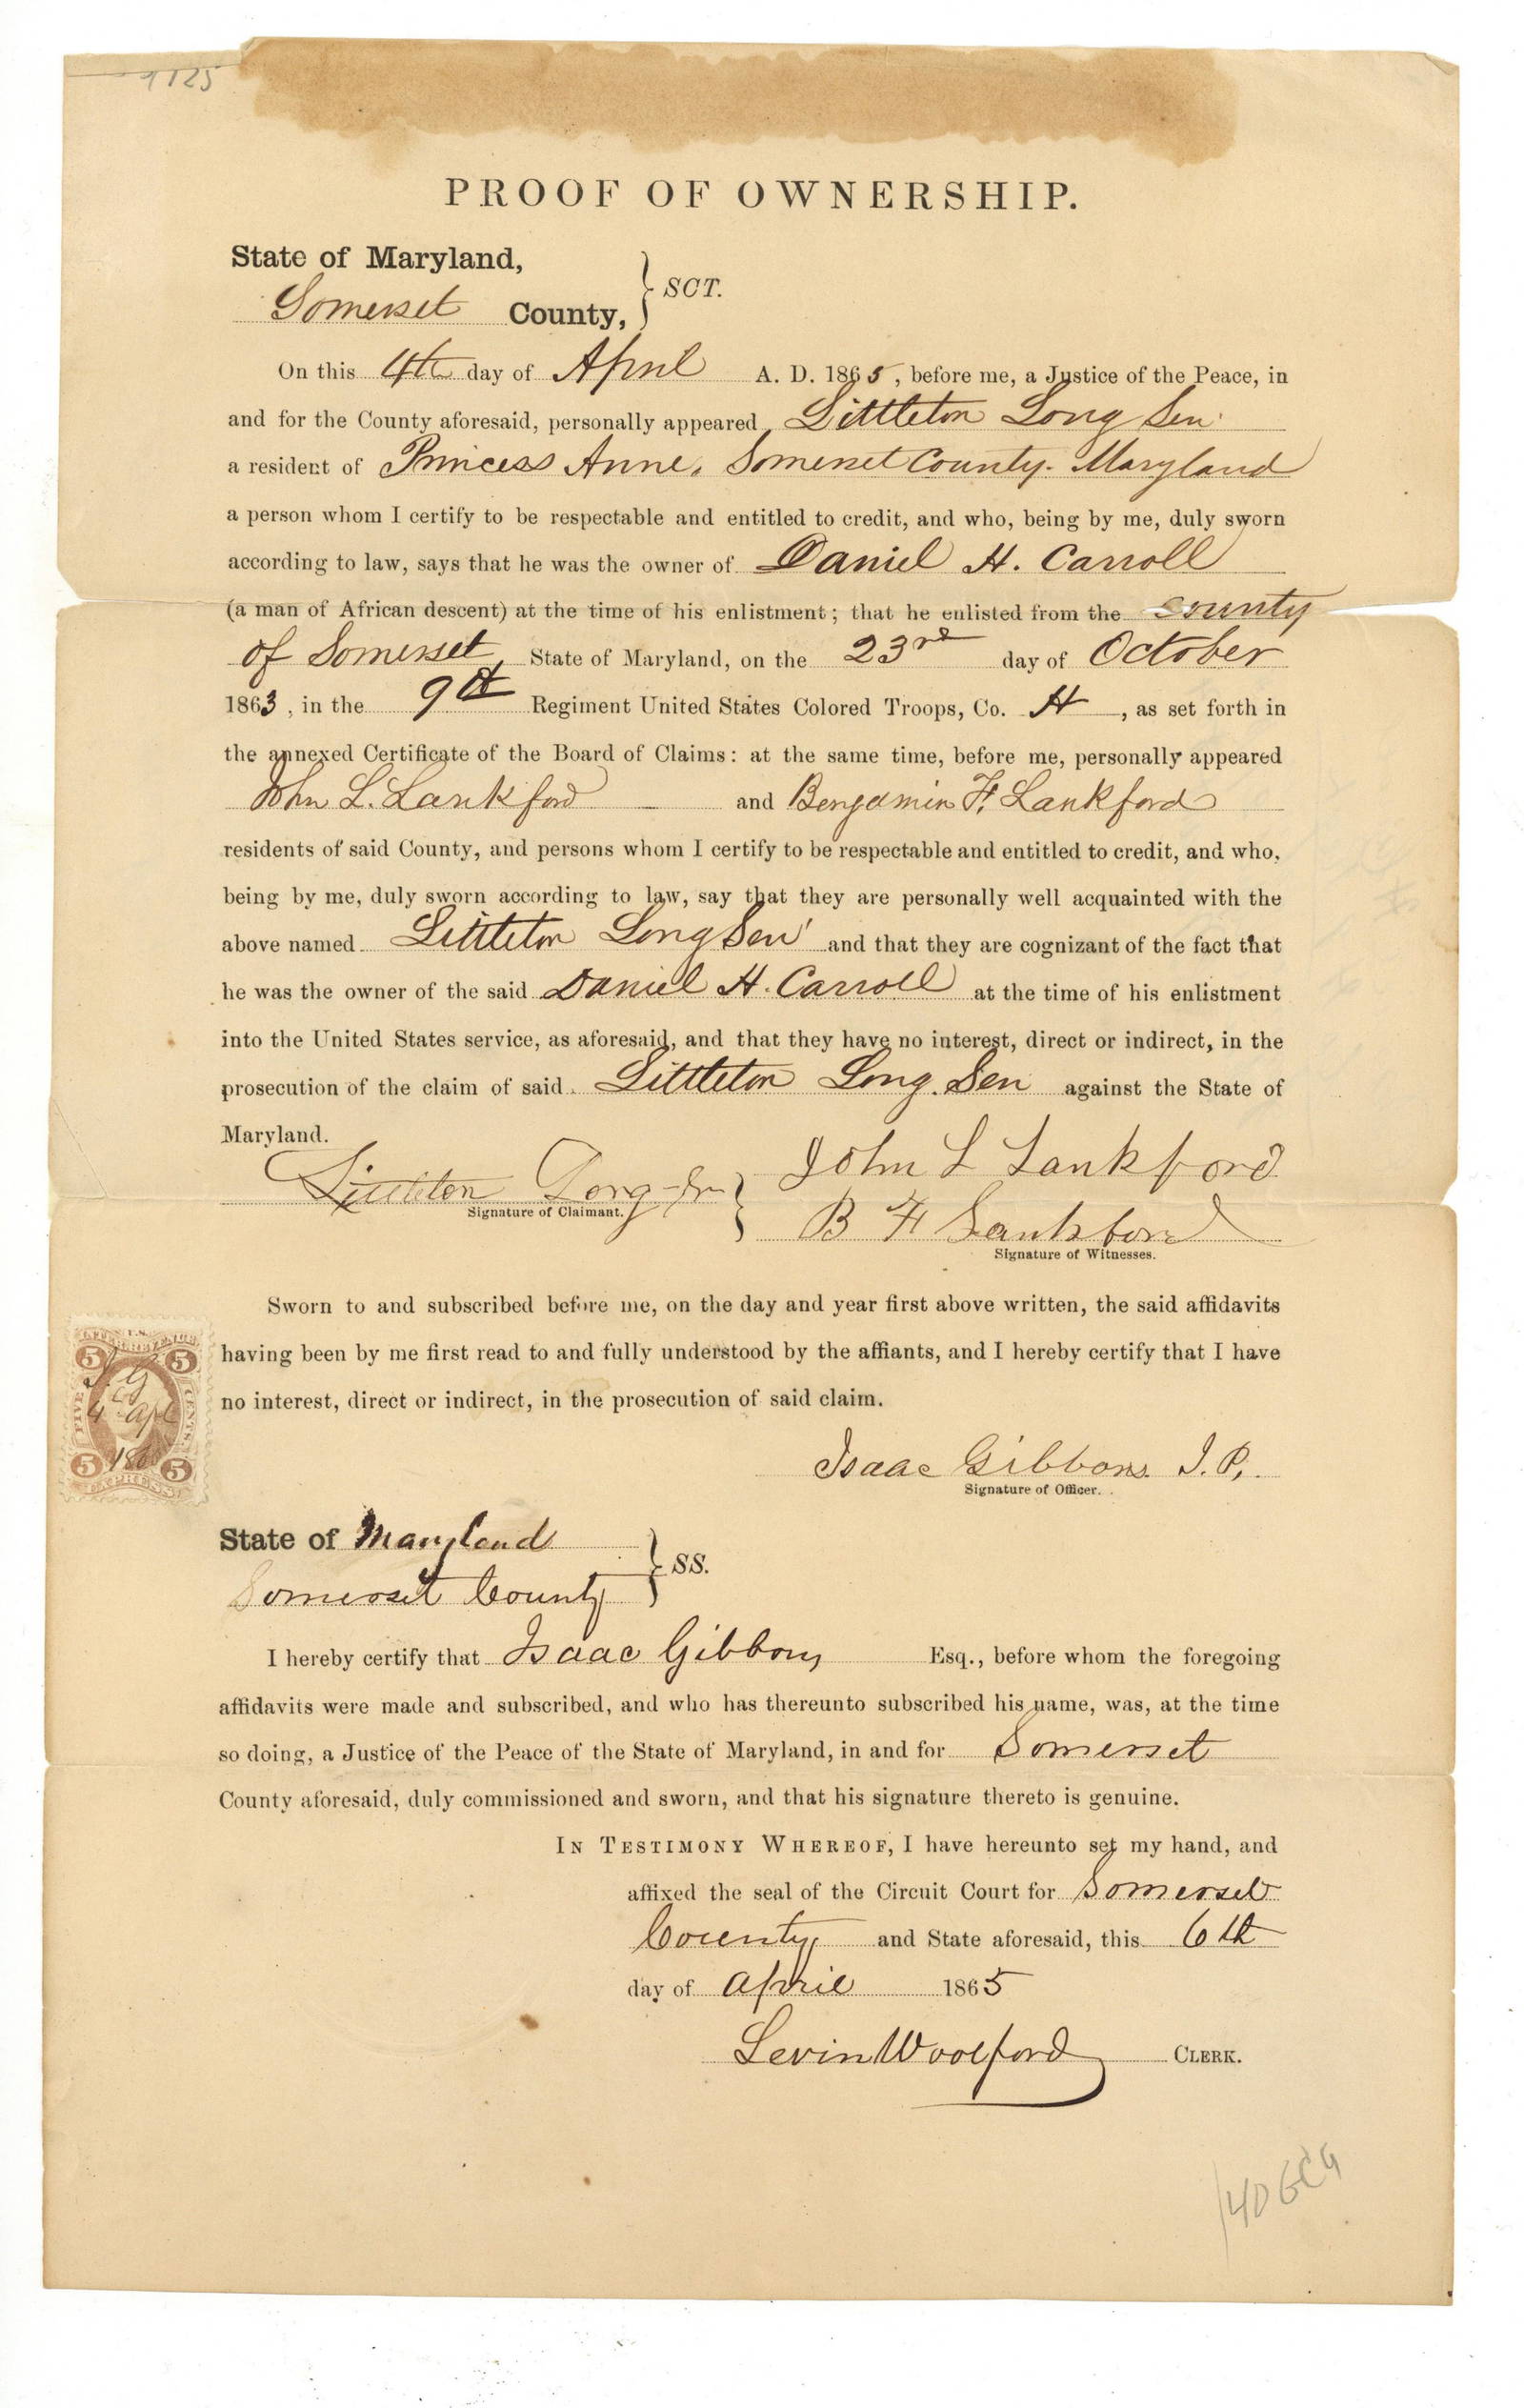 1125
PROOF OF OWNERSHIP.
State of Maryland,
Somerset County, } SCT.
On this 4th day of April A. D. 1865, before me, a Justice of the Peace, in
and for the County aforesaid, personally appeared Littleton Long Sen.
a resident of Princess Anne, Somerset County. Maryland
a person whom I certify to be respectable and entitled to credit, and who, being by me, duly sworn
according to law, says that he was the owner of Daniel H. Carroll
(a man of African descent) at the time of his enlistment; that he enlisted from the County
of Somerset, State of Maryland, on the 23rd day of October
1863, in the 9th Regiment United States Colored Troops, Co. H, as set forth in
the annexed Certificate of the Board of Claims: at the same time, before me, personally appeared
John L. Lankford and Benjamin F. Lankford
residents of said County, and persons whom I certify to be respectable and entitled to credit, and who,
being by me, duly sworn according to law, say that they are personally well acquainted with the
above named Littleton Long Sen and that they are cognizant of the fact that
he was the owner of the said Daniel H. Carroll at the time of his enlistment
into the United States service, as aforesaid, and that they have no interest, direct or indirect, in the
prosecution of the claim of said Littleton Long. Sen against the State of
Maryland.
Littleton Long Sr } John L Lankford
Signature of Claimant.
B F Lankford
Signature of Witnesses.
Sworn to and subscribed before me, on the day and year first above written, the said affidavits
having been by me first read to and fully understood by the affiants, and I hereby certify that I have
no interest, direct or indirect, in the prosecution of said claim.
5 5
FIVE CENTS
I. G
4 Apl
5 5
Isaac Gibbons J. P.
Signature of Officer.
State of Maryland
Somerset County } SS.
I hereby certify that Isaac Gibbons Esq., before whom the foregoing
affidavits were made and subscribed, and who has thereunto subscribed his name, was, at the time
so doing, a Justice of the Peace of the State of Maryland, in and for Somerset
County aforesaid, duly commissioned and sworn, and that his signature thereto is genuine.
IN TESTIMONY WHEREOF, I have hereunto set my hand, and
affixed the seal of the Circuit Court for Somerset
County and State aforesaid, this 6th
day of April 1865
Levin Woolford CLERK.